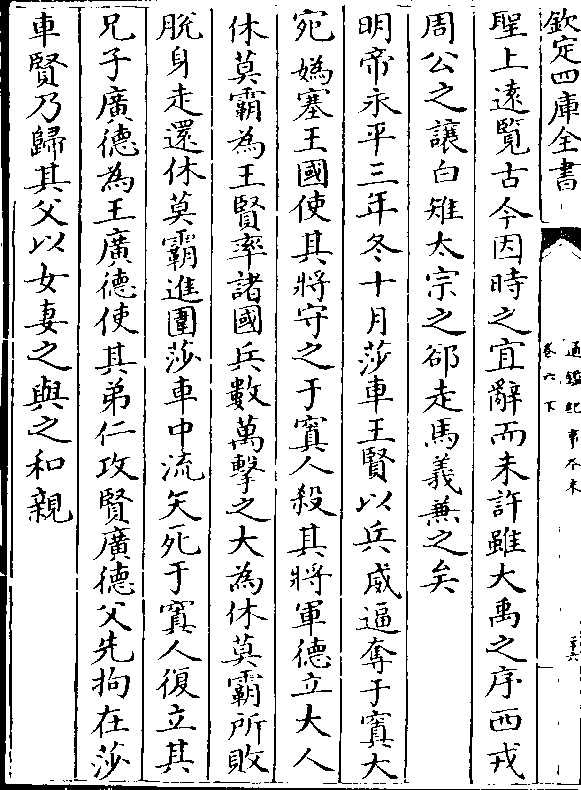 欽定四庫全書
通鑑紀事本末
卷六下
聖上遠覽古今因時之宜辭而未許雖大禹之序西戎
周公之讓白雉太宗之郤走馬義兼之矣
明帝永平三年冬十月莎車王賢以兵威逼奪于窴大
宛媯塞王國使其將守之于窴人殺其將軍德立大人
休莫霸為王賢率諸國兵數萬擊之大為休莫霸所敗
脫身走還休莫霸進圍莎車中流矢死于窴人復立其
兄子廣德為王廣德使其弟仁攻賢廣德父先拘在莎
車賢乃歸其父以女妻之與之和親